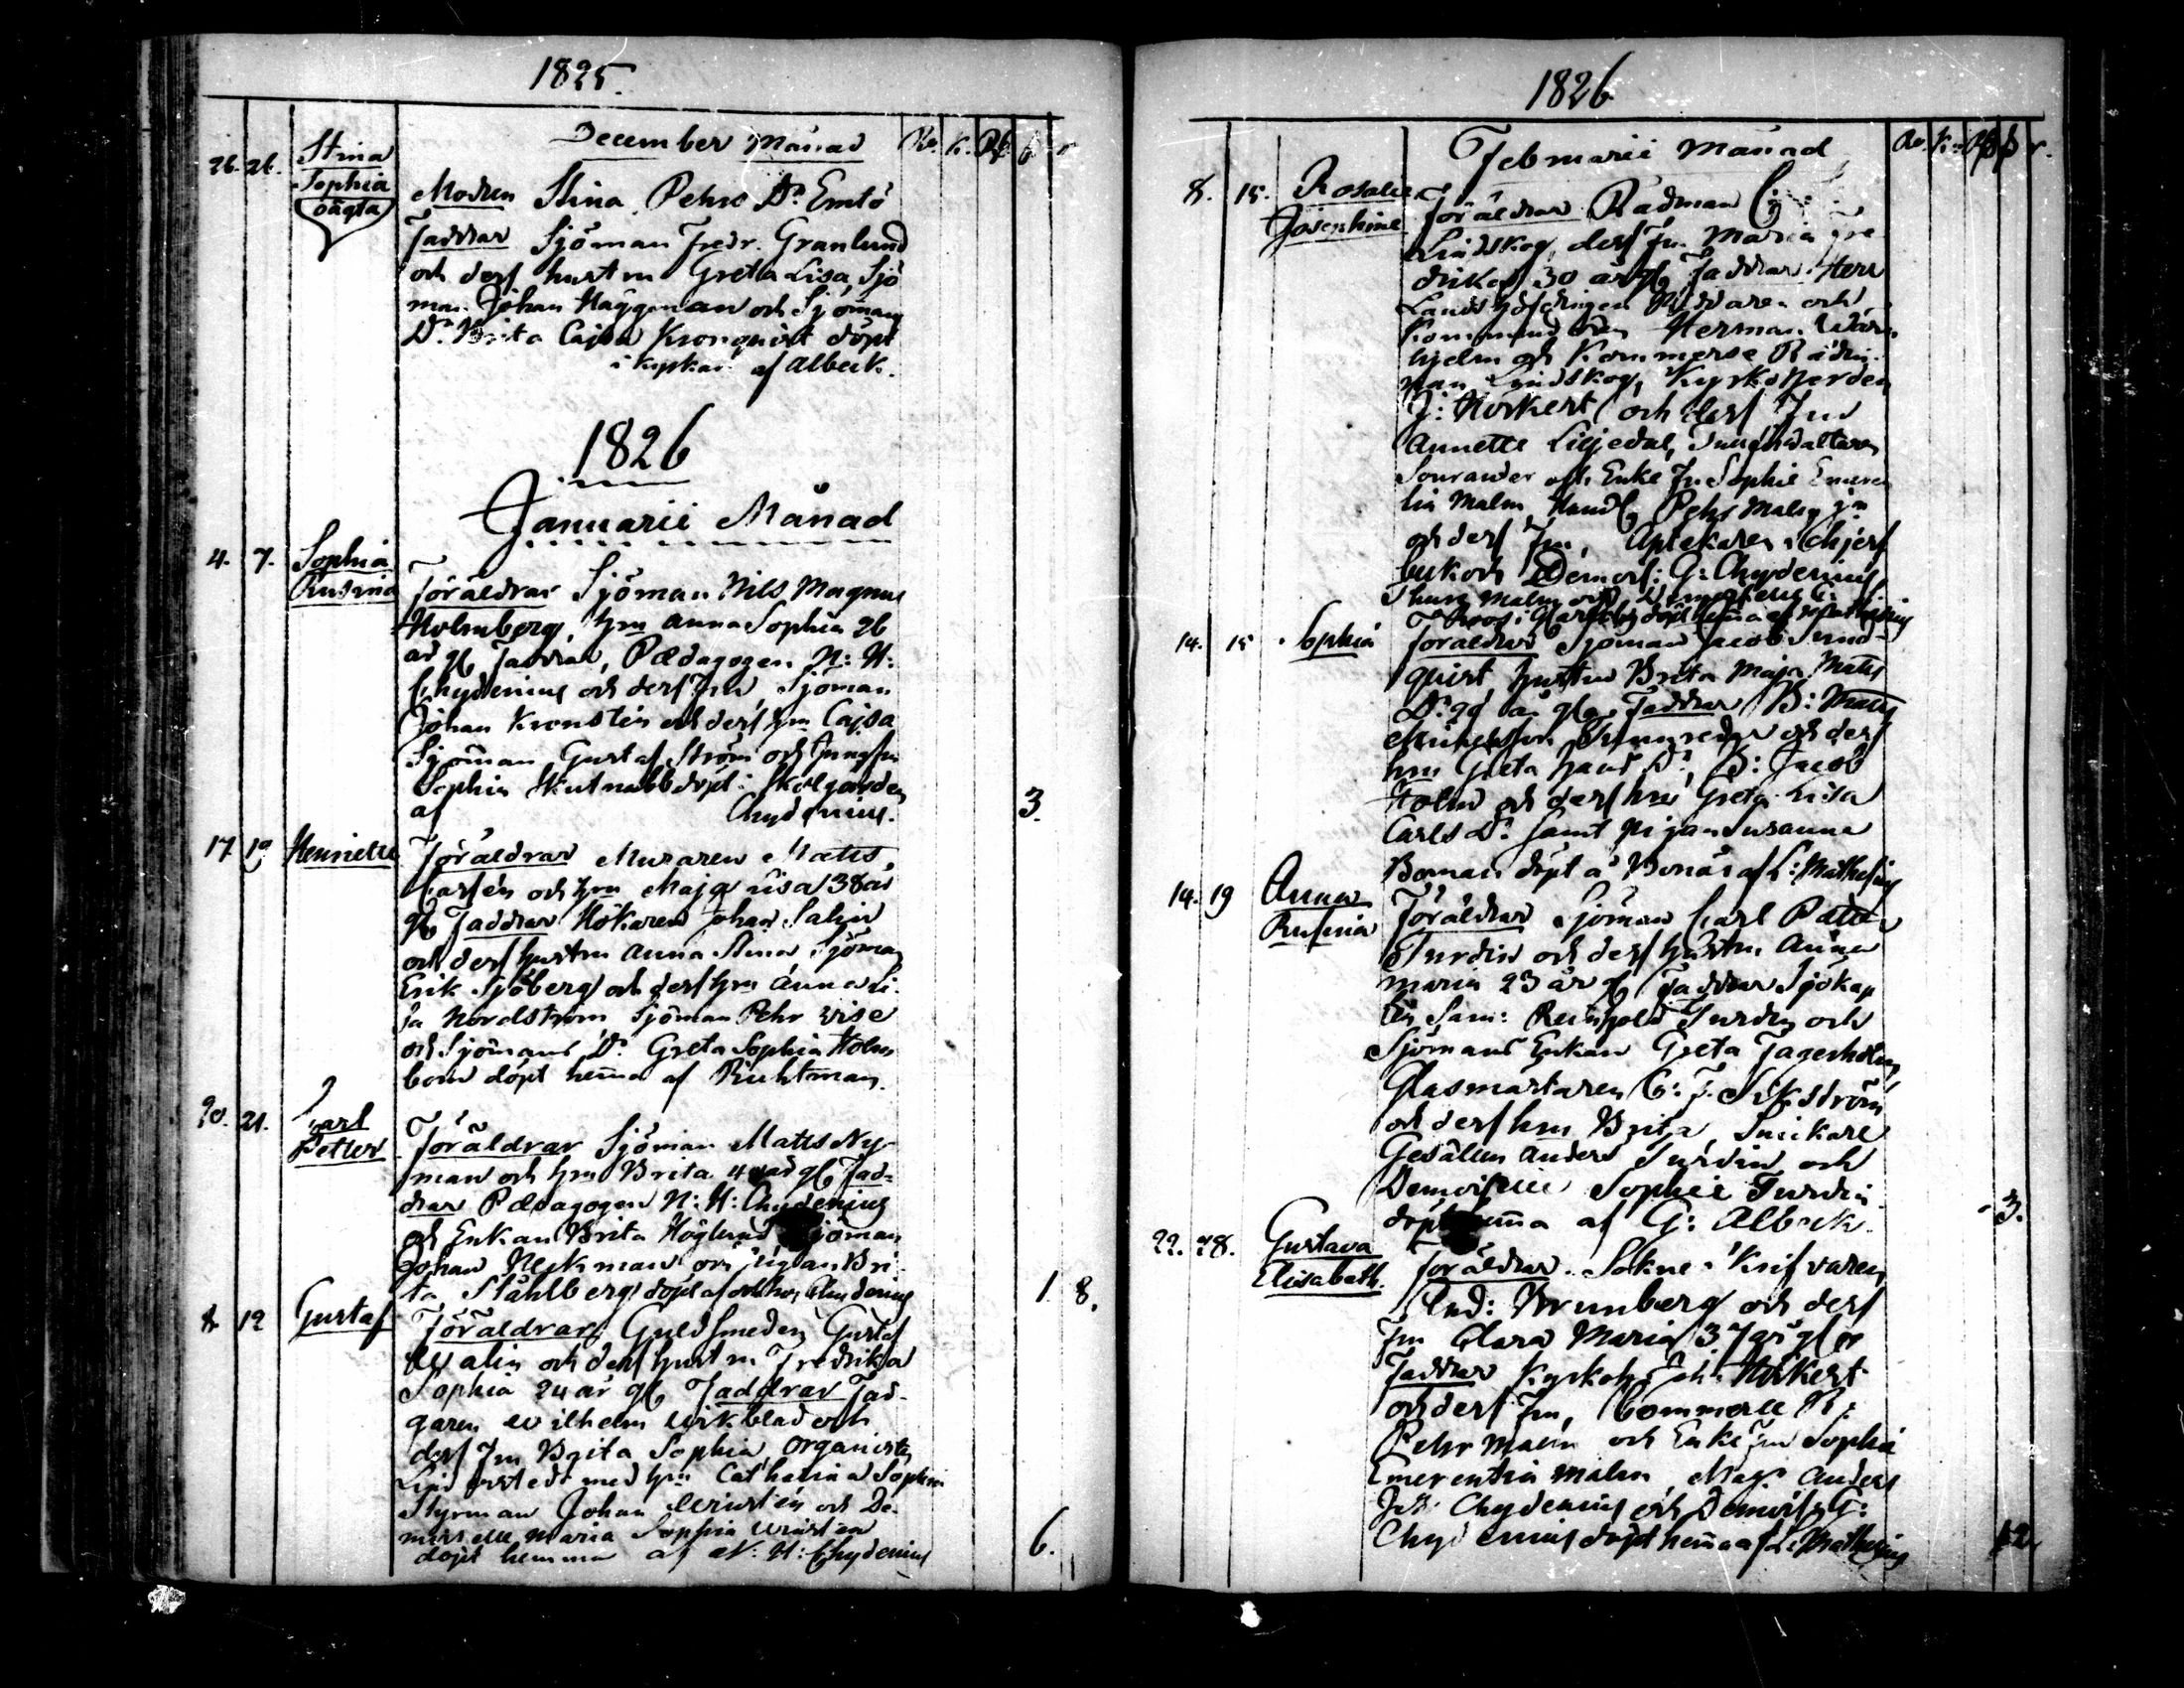 1825.
December Månad
Ro. K. Rß. ß r
26. 26. Stina
Sophia
oägta
Modren Stina Pehrs Dr. Emtö
Faddrar Sjöman Fredr. Granlund
och dess hustru Greta Lisa, Sjö
man Johan Häggman och Sjömans
Dr. Brita Cajsa Kronqvist döpt
i kyrkan af Albeck.
1826
Januarii Månad
4. 7. Sophia
Rusina
Föräldrar Sjöman Nils Magnus
Holmberg, hru Anna Sophia 26
år gl Faddrar, Pædagogen N: H:
Chydenius och dess Fru, Sjöman
Johan Kronstén och dess hru Cajsa
Sjöman Gustaf Ström och Jungfru
Sophia Skutnabb döpt i Skolgården
af Chydenius. 3.
17. 19 Henriette
Föräldrar Muraren Matts
Carlén och hru Maja Lisa 38 år
gl Faddrar Hökaren Johan Salin
och dess hustru Anna Stina Sjöman
Erik Sjöberg och dess hru Anna Li
sa Nordström Sjöman Pehr Wise
och Sjömans Dr. Greta Sophia Holm
bom döpt hem̃a af
20. 21. Carl
Petter
Föräldrar Sjöman Matts Ny-
man och hru Brita 4 år gl Fad-
drar Pædagogen N: H: Chydenius
och Enkan Brita Höglund Sjöman
Johan och Pigan Bri
ta Ståhlberg döpt af och hos Chydenius 1 8.
8. 12 Gustaf
Föräldrar Guldsmeden Gustaf
och dess hustru Fredrika
Sophia 24 år gl Faddrar Fad-
garen Wilhelm Wikblad och
dess Fru Brita Sophia, Organisten
med hru Catharina Sophia
Styrman Johan och De-
moiselle Maria Sophia
döpt hemma af N: H: Chydenius 6.
1826
Februarii Månad
Ro. K. Rß ß r.
8. 15. Rosalie
Josephine
Föräldrar Rådman
Lindskog, dess Fru Maria Fre
drika 30 år gl, Faddrar Herr
Landshöfdingen Riddaren och
Kommend Herman Wärn
hjelm och Kommerse Rådin-
nan Lindskog, Kyrkoherden
J: Hörkert och dess Fru
Annette Liljedal,
Sourander och Enke Fru Sophie Emeren
tia Malm, Handl Pehr Malm jn
och dess Fru, Apotekaren
och Demois: G: Chydenius
Malm och
döpt hem̃a af Mathesius
14. 15 Sophia
Föräldrar Sjöman Jacob Sund-
quist hustru Brita Maja Matts
Dr. 28 år gla Faddrar B: Matts
och dess
hru Greta Dr., B: Jacob
Holm och dess hru Greta Lisa
Carls Dr. samt Pigan Susanna
Boman döpt å Bonäs af L: Mathesius
14. 19 Anna
Rufina
Föräldrar Sjöman Carl Petter
Turdin och dess hustru Anna
Maria 23 år gl Faddrar Sjökap
ten Sam: Reinhold Turdin och
Sjömans Enkan Greta Fagerholm,
Glasmästaren C: F. Sikström
och dess hru Brita, Snickare
Gesällen Anders Turdin och
Demoiselle Sophie Turdin
döpt hem̃a af G: Albeck. 3.
22. 28. Gustava
Elisabeth.
Föräldrar. Sokne Skrifvaren
And: Brunberg och dess
Fru Clara Maria 37 år gl
Faddrar Kyrkoh: Joh: Hörkert
och dess Fru, Commerce R:
Pehr Malm och Enke Fru Sophia
Emerentia Malm Mag: Anders
Joh: Chydenius och Demois: G:
Chydenius döpt hem̃a af L: Mathesius 12